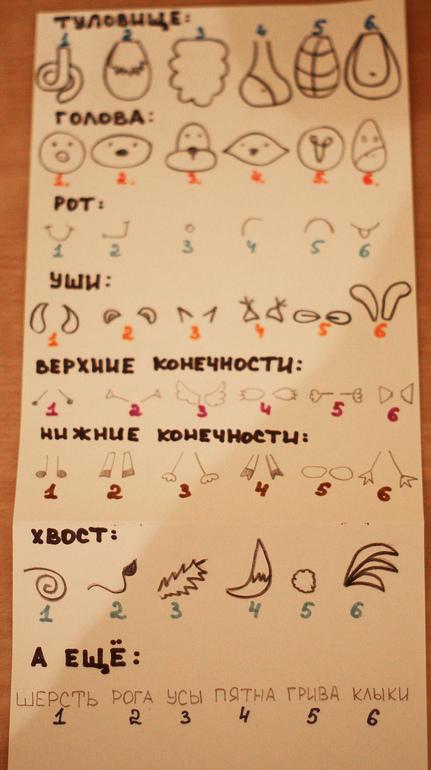 ТУЛОВИЩЕ:
1 2 3 4 5 6
ГОЛОВА:
1. 2. 3. 4. 5. 6.
РОТ:
1 2 3 4 5 6
УШИ:
1 2 3 4 5 6
ВЕРХНИЕ КОНЕЧНОСТИ:
1 2 3 4 5 6
НИЖНИЕ КОНЕЧНОСТИ:
1 2 3 4 5 6
ХВОСТ:
1 2 3 4 5 6
А ЕЩЁ:
ШЕРСТЬ РОГА УСЫ ПЯТНА ГРИВА КЛЫКИ
1 2 3 4 5 6